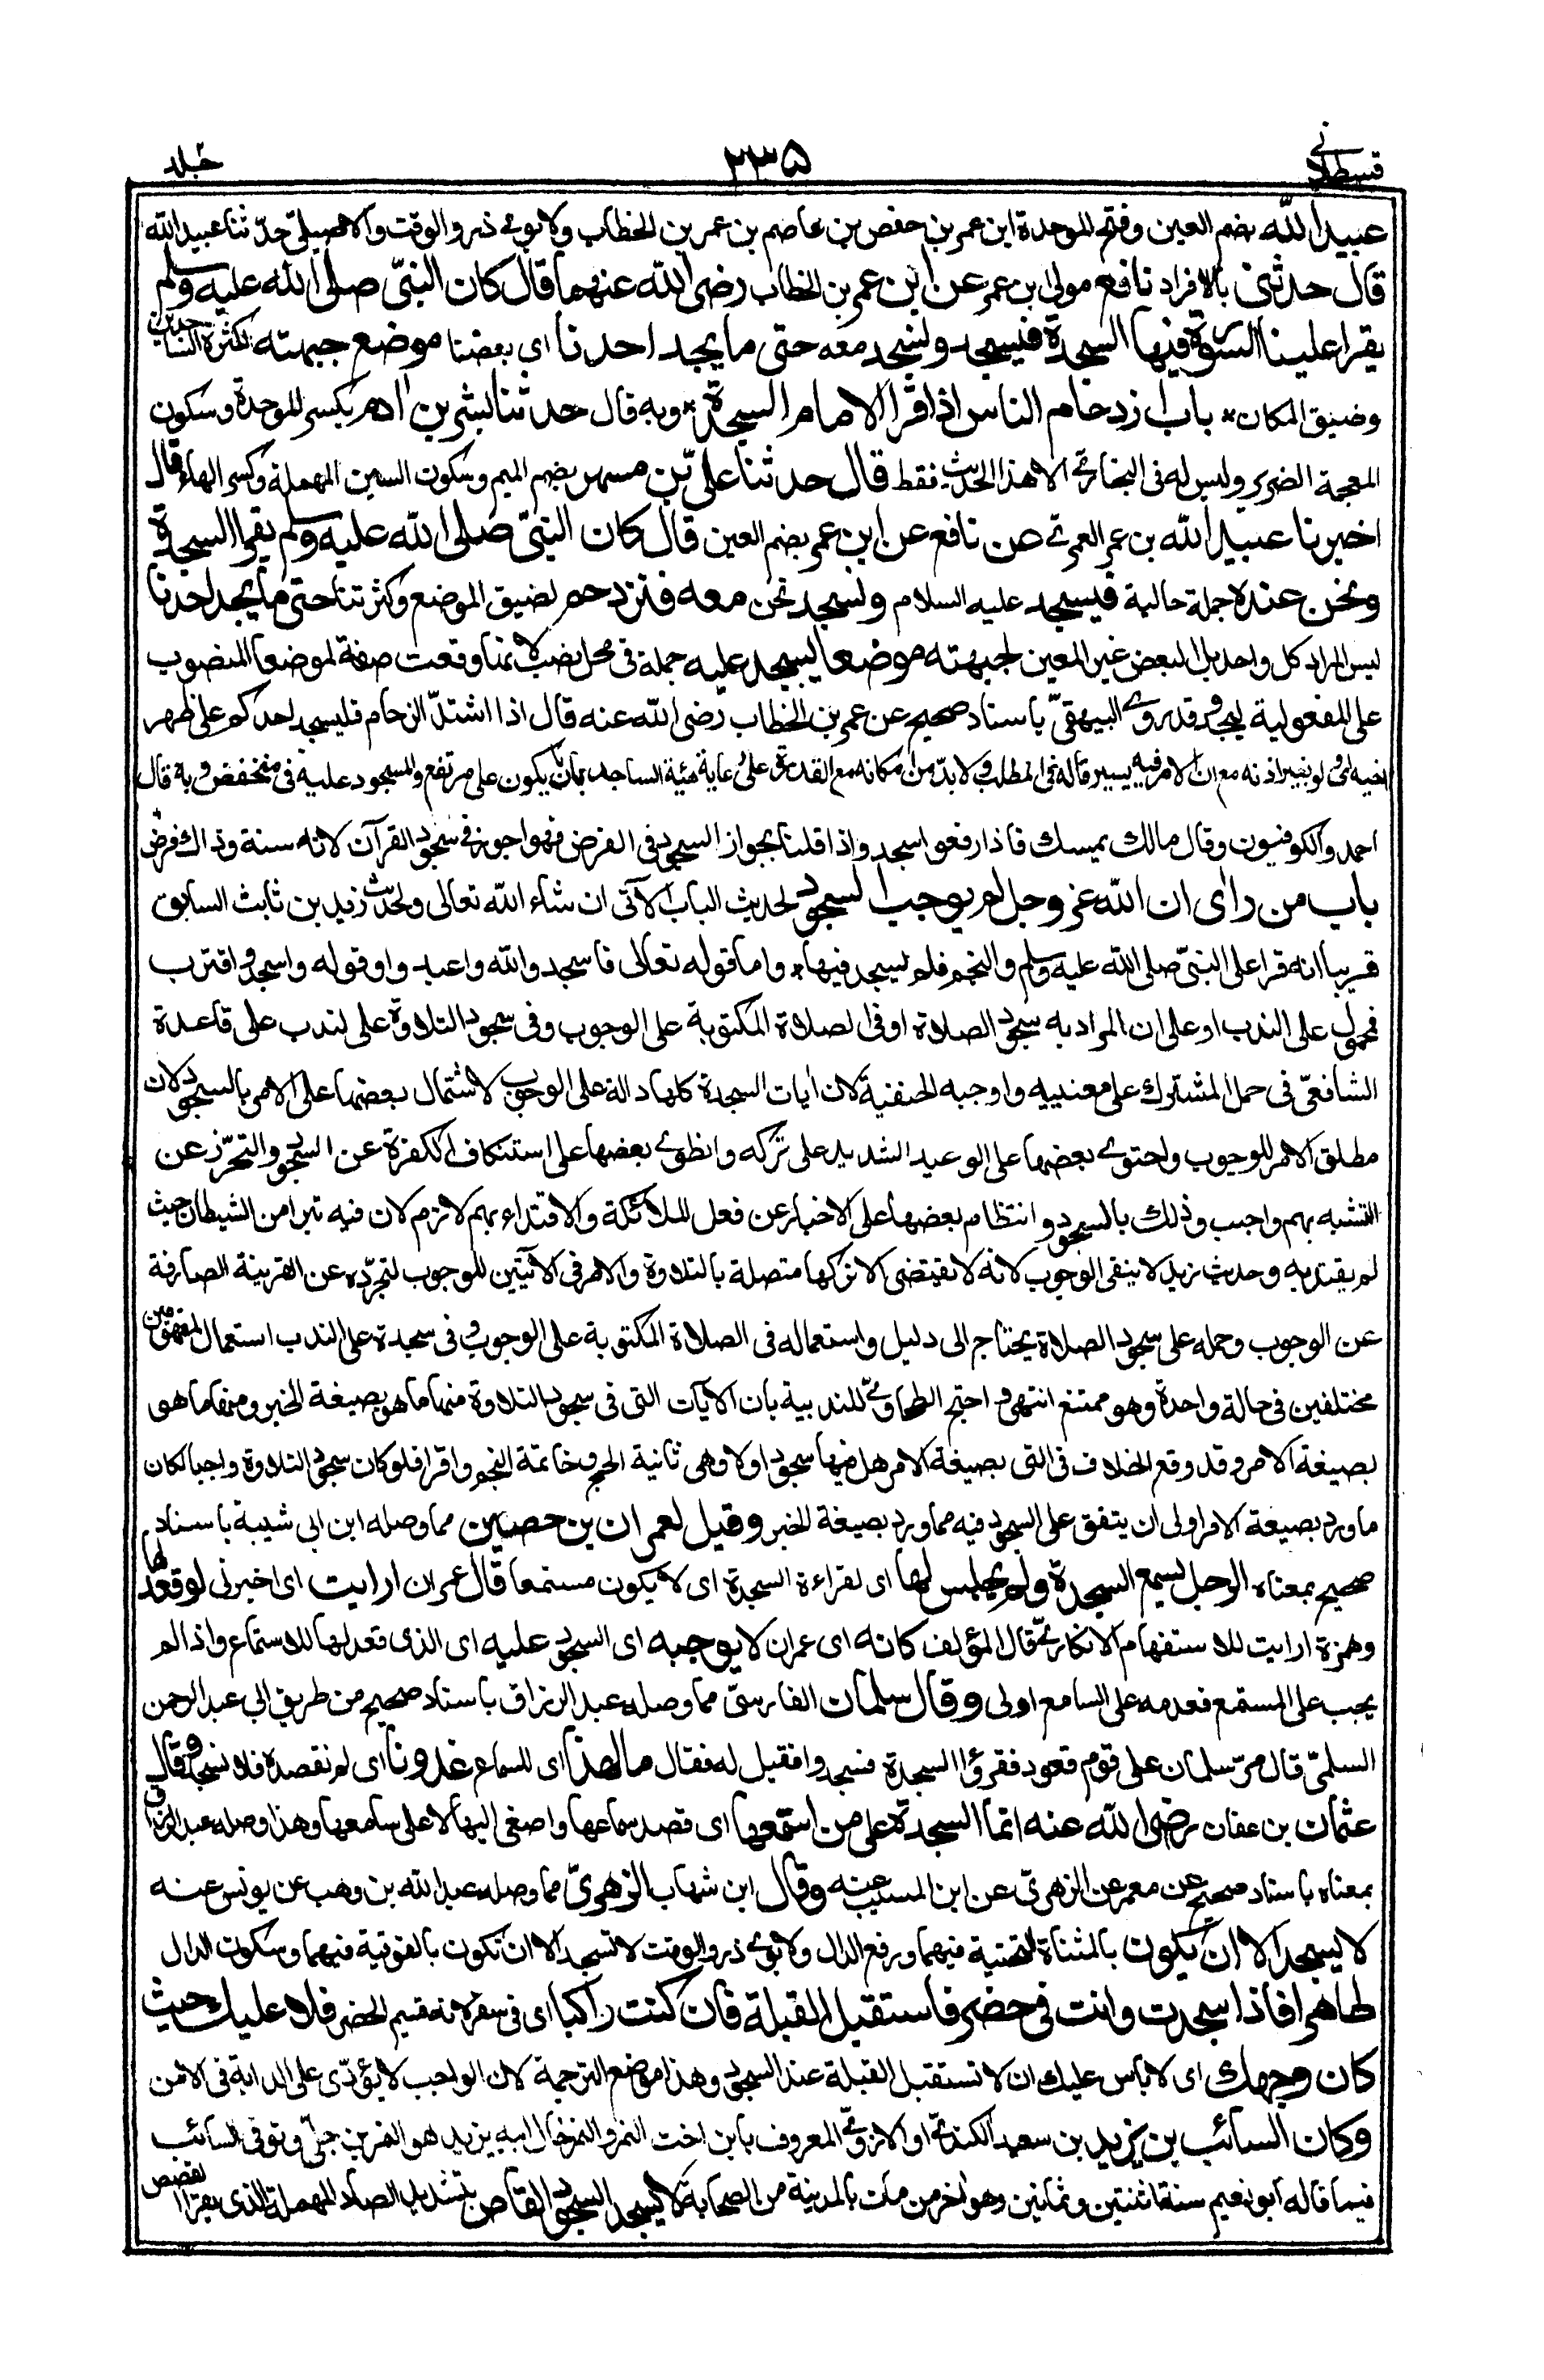 قسطلانى ٢٣٥ جلد
عبيد الله بضم العين وفتح الموحدة ابن عمر بن حفص بن عاصم بن عمر بن الخطاب ولابوى ذر والوقت والاصيلى حدّثنا عبيد الله
قال حدثنى بالافراد نافع مولى ابن عمر عن ابن عمر بن الخطاب رضى الله عنهما قال كان النبىّ صلى الله عليه وسلم
يقرا علينا السورة فيها السجدة فيسجد ونسجد معه حتى ما يجد احدنا اى بعضنا موضع جبهته لكثرة الساجدين
وضيق المكان * باب ازدحام الناس اذا قرا الامام السجدة * وبه قال حدثنا بشر بن ادم بكسر الموحدة وسكون
المعجمة الضرير وليس له فى البخارى الا هذا الحديث فقط قال حدثنا علىّ بن مسهر بضم الميم وسكون السين المهملة وكسر الهاء قال
اخبرنا عبيد الله بن عمر العمرى عن نافع عن ابن عمر بضم العين قال كان النبىّ صلى الله عليه وسلم يقرا السجدة
ونحن عنده جملة حالية فيسجد عليه السلام ونسجد نحن معه فنزدحم لضيق الموضع وكثرتنا حتى ما يجد احدنا
ليس المراد كل واحد بل البعض غير المعين لجبهته موضعا يسجد عليه جملة فى محل نصب لانها وقعت صفة لموضعا المنصوب
على المفعولية ليجد وقد روى البيهقىّ باسناد صحيح عن عمر بن الخطاب رضى الله عنه قال اذا اشتدّ الزحام فليسجد احدكم على ظهر
اخيه اى ولو بغير اذنه مع ان الامر فيه يسير قاله فى المطلب ولا بدّ من امكانه مع القدرة على رعاية هيئة الساجد بان يكون على مرتفع والمسجود عليه فى منخفض وبه قال
احمد والكوفيون وقال مالك يمسك فاذا رفعوا سجد واذا قلنا بجواز السجود فى الفرض فهو اجوز فى سجود القرآن لانه سنة وذاك فرض
باب من راى ان الله عز وجل لم يوجب السجود لحديث الباب الآتى ان شاء الله تعالى ولحديث زيد بن ثابت السابق
قريبا انه قرا على النبىّ صلى الله عليه وسلم والنجم فلم يسجد فيها * واما قوله تعالى فاسجدوا لله واعبدوا وقوله واسجد واقترب
فمحمول على الندب او على ان المراد به سجود الصلاة او فى الصلاة المكتوبة على الوجوب وفى سجود التلاوة على الندب على قاعدة
الشافعىّ فى حمل المشترك على معنييه واوجبه الحنفية لان ايات السجدة كلها دالة على الوجوب لاشتمال بعضها على الامر بالسجود لان
مطلق الامر للوجوب واحتوى بعضها على الوعيد الشديد على تركه وانطوى بعضها على استنكاف الكفرة عن السجود والتحرّز عن
التشبه بهم واجب وذلك بالسجود وانتظام بعضها على الاخبار عن فعل الملائكة والاقتداء بهم لازم لان فيه تبرا من الشيطان حيث
لم يقتد به وحديث زيد لا ينفى الوجوب لانه لا يقتضى الا تركها متصلة بالتلاوة والامر فى الآيتين للوجوب لتجرّده عن القرينة الصارفة
عن الوجوب وحمله على سجود الصلاة يحتاج الى دليل واستعماله فى الصلاة المكتوبة على الوجوب وفى سجدة على الندب استعمال لمفهومين
مختلفين فى حالة واحدة وهو ممتنع انتهى واحتج الطحاوىّ للندبية بان الآيات التى فى سجود التلاوة منها ما هو بصيغة الخبر ومنها ما هو
بصيغة الامر وقد وقع الخلاف فى التى بصيغة الامر هل فيها سجود او لا وهى ثانية الحج وخاتمة النجم واقرا فلو كان سجود التلاوة واجبا لكان
ما ورد بصيغة الامر اولى ان يتفق على السجود فيه مما ورد بصيغة الخبر وقيل لعمران بن حصين مما وصله ابن ابى شيبة باسناد
صحيح بمعناه الرجل يسمع السجدة ولم يجلس لها اى لقراءة السجدة اى لا يكون مستمعا قال عمران ارايت اى اخبرنى لو قعد لها
وهمزة ارايت للاستفهام الانكارىّ قال المؤلف كانه اى عمران لا يوجبه اى السجود عليه اى الذى قعد لها للاستماع واذا لم
يجب على المستمع فعدمه على السامع اولى وقال سلمان الفارسىّ مما وصله عبد الرزاق باسناد صحيح من طريق ابى عبد الرحمن
السلمىّ قال مرّ سلمان على قوم قعود فقرؤا السجدة فسجدوا فقيل له فقال ما لهذا اى للسماع غدونا اى لم نقصده فلا نسجد وقال
عثمان بن عفان رضى الله عنه انما السجدة على من استمعها اى قصد سماعها واصغى اليها لا على سامعها وهذا وصله عبد الرزاق
بمعناه باسناد صحيح عن معمر عن الزهرىّ عن ابن المسيب عنه وقال ابن شهاب الزهرىّ مما وصله عبد الله بن وهب عن يونس عنه
لا يسجد الا ان يكون بالمثناة التحتية فيهما ورفع الدال ولابوى ذر والوقت لا تسجد الا ان تكون بالفوقية فيهما وسكون الدال
طاهرا فاذا سجدت وانت فى حضر فاستقبل القبلة فان كنت راكبا اى فى سفر لانه قسيم الحضر فلا عليك حيث
كان وجهك اى لا باس عليك ان لا تستقبل القبلة عند السجود وهذا موضع الترجمة لان الواجب لا يؤدّى على الدابة فى الامن
وكان السائب بن يزيد بن سعيد الكندىّ او الازدىّ المعروف بابن اخت النمر والنمر خال ابيه يزيد هو النمر بن جبل وتوفى السائب
فيما قاله ابو نعيم سنة اثنتين وثمانين وهو اخر من مات بالمدينة من الصحابة لا يسجد لسجود القاص بتشديد الصاد المهملة الذى يقرا القصص